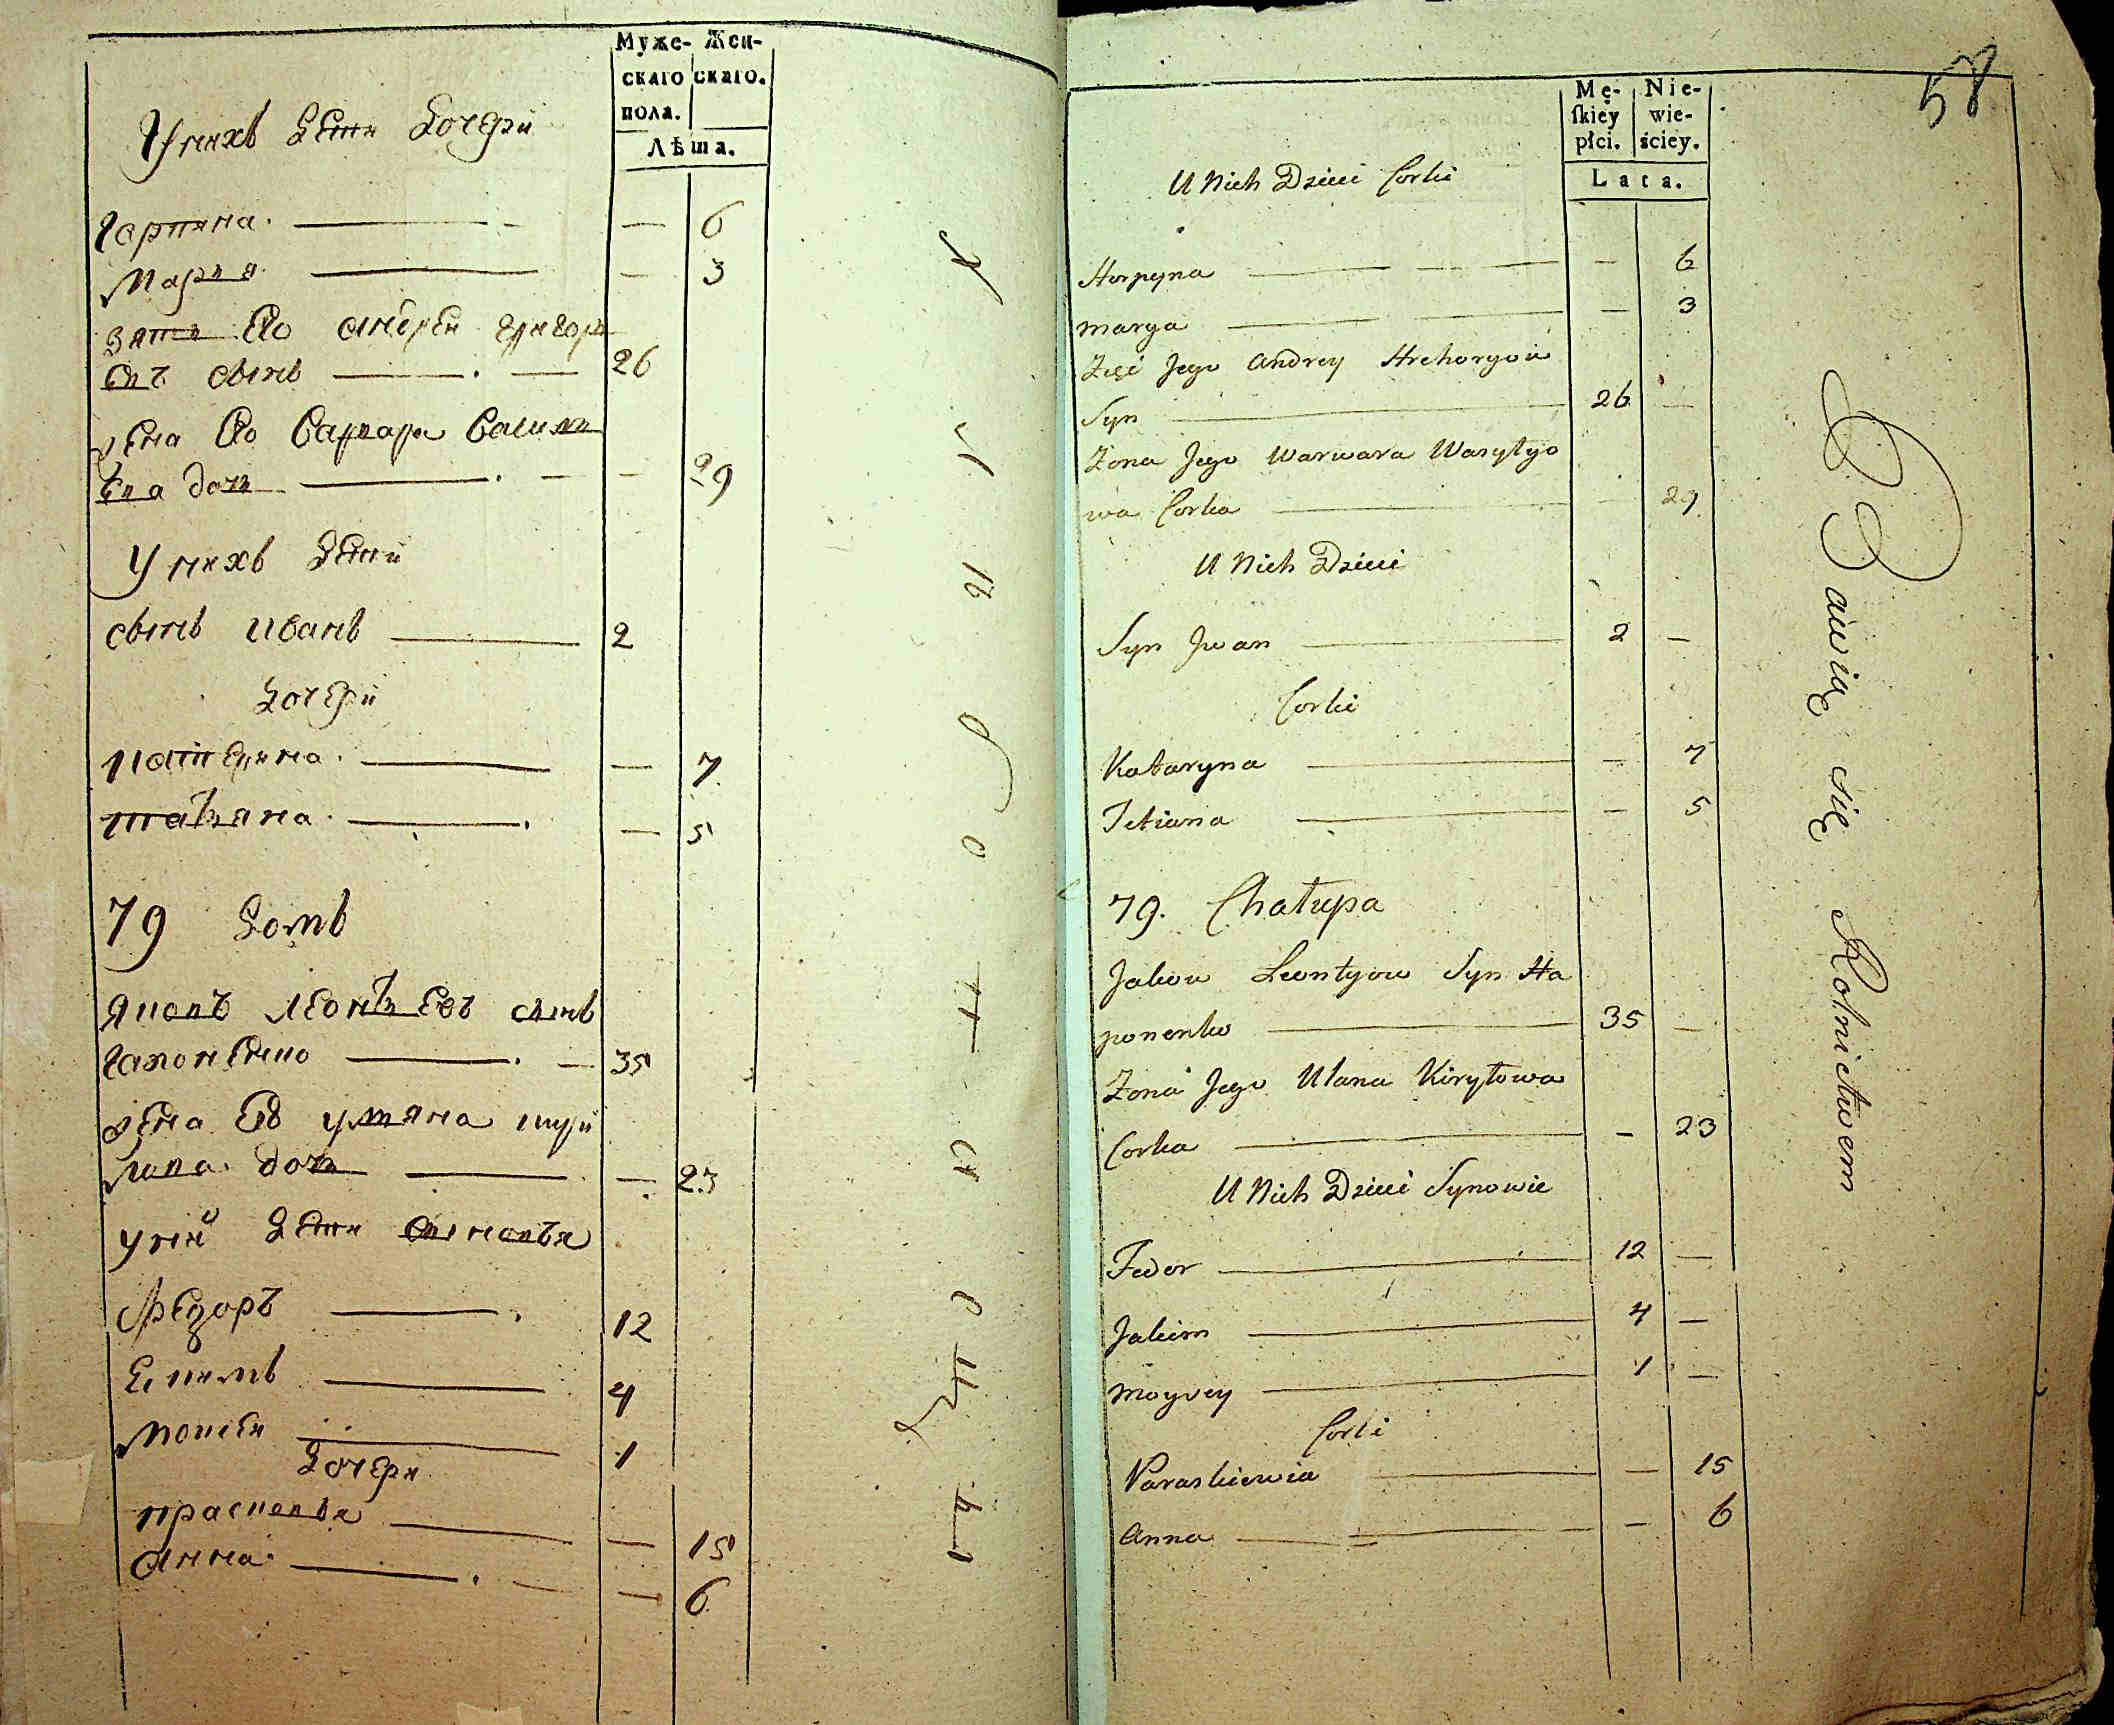 Муже- Жен-
скаго скаго.
пола.
Лѣта.
У нихъ дети дочери
Гарпина — 6
Мария — 3
Зять его андреи григорь
евъ сынъ — 26
Жена его варвара васили
ева дочь — 29
У нихъ дети
сынъ иванъ — 2
дочери
Катерина — 7
татьяна — 5
79 домъ
Яковъ леонтьевъ сынъ
Гапоненко — 35
Жена его ульяна кури
лова дочь — 23
У нихъ дети сыновья
Федоръ — 12
Екимъ — 4
Мойсеи — 1
дочери
Прасковья — 15
Анна — 6
58
Mę- Nie-
skiey wie-
płci. ściey.
Lata.
U Nich Dzieci Corki
Horpyna — 6
Marya — 3
Zięć Jego Andrey Hrehoryow
Syn — 26 —
Zona Jego Warwara Wasylyo
wa Corka — 29
U Nich Dzieci
Syn Jwan — 2 —
Corki
Kataryna — 7
Tetiana — 5
79. Chałupa
Jakow Leontyow Syn Ha
ponenko — 35 —
Zona Jego Ulana Kiryłowa
Corka — 23
U Nich Dzieci Synowie
Fedor — 12 —
Jakim — 4 —
Moysey — 1 —
Corki
Paraskiewia — 15
Anna — 6
Bawią się Rolnictwem